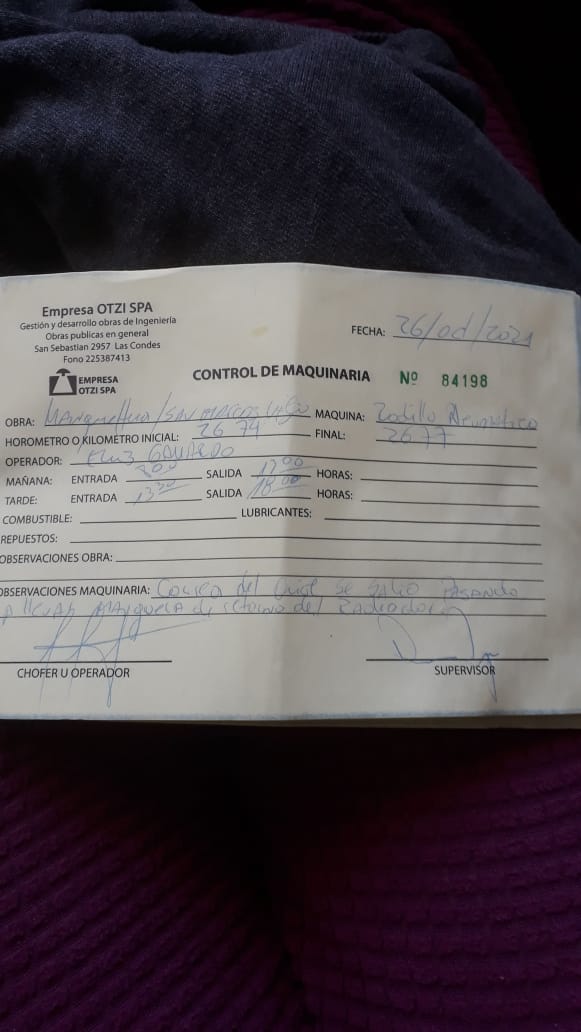 Empresa OTZI SPA
Gestión y desarrollo obras de Ingeniería
Obras publicas en general
San Sebastian 2957 Las Condes
Fono 225387413
EMPRESA
OTZI SPA
FECHA: 26/04/2021
CONTROL DE MAQUINARIA Nº 84198
OBRA: MAQUINA: Rodillo Neumatico
HOROMETRO O KILOMETRO INICIAL: 2674 FINAL: 2677
OPERADOR:
MAÑANA: ENTRADA 800 SALIDA 1200 HORAS:
TARDE: ENTRADA 1330 SALIDA 1800 HORAS:
COMBUSTIBLE: LUBRICANTES:
REPUESTOS:
OBSERVACIONES OBRA:
OBSERVACIONES MAQUINARIA: Correa del Se Salio PASANDO
A llevar MANguera de retorno del Radiador
CHOFER U OPERADOR SUPERVISOR